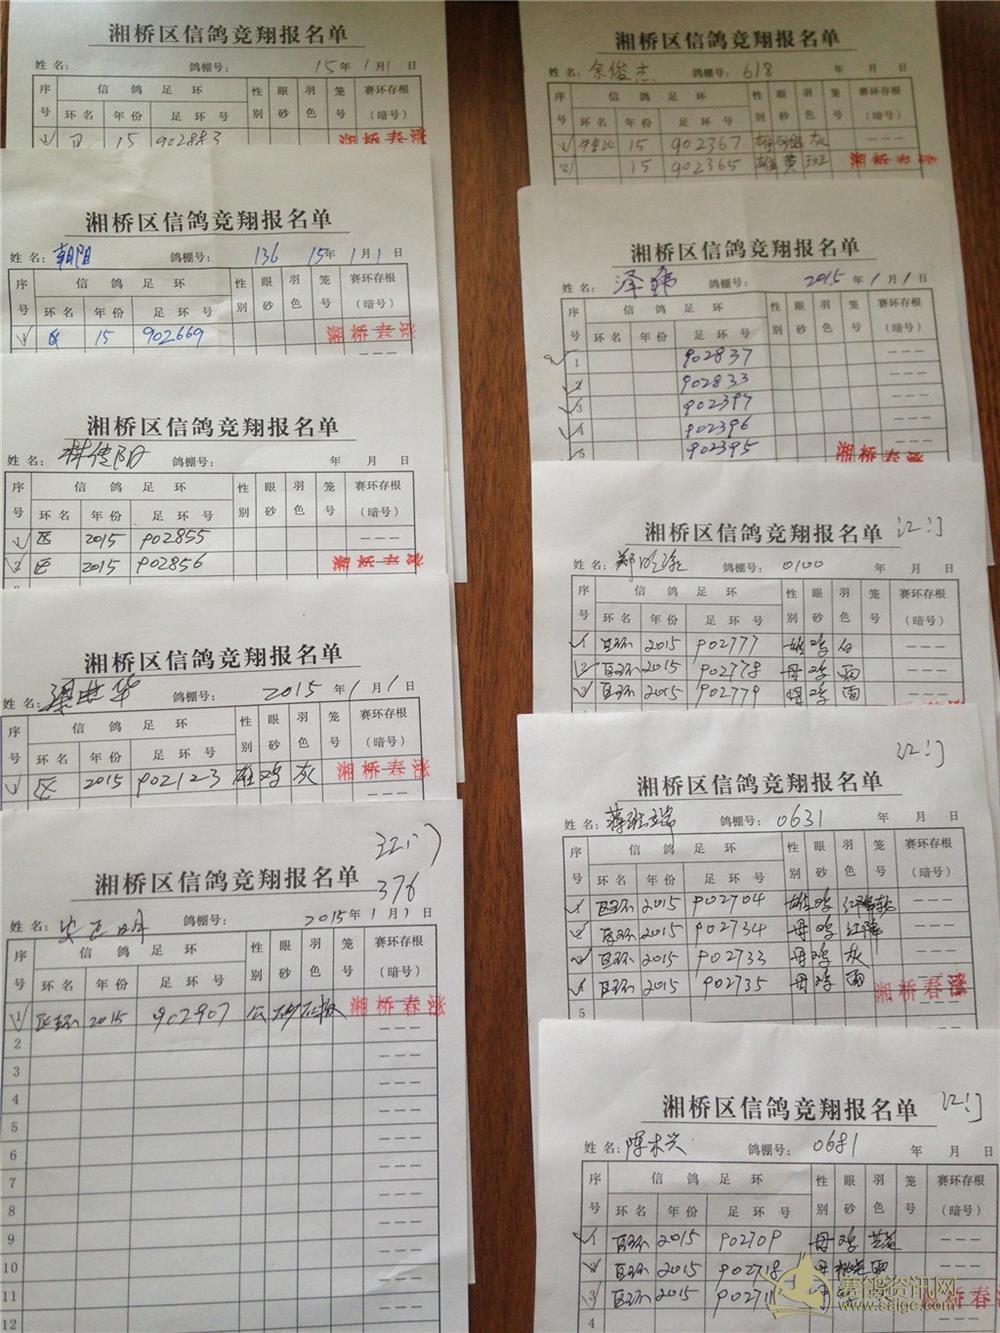 湘桥区信鸽竞翔报名单
姓 名： 鸽棚号： 15年 1月1日
序号 信 鸽 足 环 性别 眼砂 羽色 笼号 赛环存根（暗号）
环 名 年 份 足 环 号
1 区 15 902883 湘桥春涨
湘桥区信鸽竞翔报名单
姓 名： 朝阳 鸽棚号： 136 15年 1月1日
序号 信 鸽 足 环 性别 眼砂 羽色 笼号 赛环存根（暗号）
环 名 年 份 足 环 号
1 区 15 902669 湘桥春涨
湘桥区信鸽竞翔报名单
姓 名： 鸽棚号： 年 月 日
序号 信 鸽 足 环 性别 眼砂 羽色 笼号 赛环存根（暗号）
环 名 年 份 足 环 号
1 区 2015 902855
2 区 2015 902856 湘桥春涨
湘桥区信鸽竞翔报名单
姓 名： 梁世华 鸽棚号： 2015年 1月1日
序号 信 鸽 足 环 性别 眼砂 羽色 笼号 赛环存根（暗号）
环 名 年 份 足 环 号
1 区 2015 902123 雄 鸡 灰 湘桥春涨
江门
湘桥区信鸽竞翔报名单 376
姓 名： 鸽棚号： 2015年 1月1日
序号 信 鸽 足 环 性别 眼砂 羽色 笼号 赛环存根（暗号）
环 名 年 份 足 环 号
1 区环 2015 902907 公 湘桥春涨
2
3
4
5
6
7
8
9
10
11
12
湘桥区信鸽竞翔报名单
姓 名： 余俊杰 鸽棚号： 618 年 月 日
序号 信 鸽 足 环 性别 眼砂 羽色 笼号 赛环存根（暗号）
环 名 年 份 足 环 号
1 15 902367 雄 灰
2 15 902365 雄 黄 斑 湘桥春涨
湘桥区信鸽竞翔报名单
姓 名： 鸽棚号： 2015年 1月1日
序号 信 鸽 足 环 性别 眼砂 羽色 笼号 赛环存根（暗号）
环 名 年 份 足 环 号
1 902837
2 902833
3 902397
4 902396
5 902395 湘桥春涨
湘桥区信鸽竞翔报名单 江门
姓 名： 鸽棚号： 0100 年 月 日
序号 信 鸽 足 环 性别 眼砂 羽色 笼号 赛环存根（暗号）
环 名 年 份 足 环 号
1 区环 2015 902777 雄 鸡 白
2 区环 2015 902778 母 鸡 雨
3 区环 2015 902779 母 鸡 雨
江门
湘桥区信鸽竞翔报名单
姓 名： 鸽棚号： 0631 年 月 日
序号 信 鸽 足 环 性别 眼砂 羽色 笼号 赛环存根（暗号）
环 名 年 份 足 环 号
1 区环 2015 902704 雄 鸡 红降
2 区环 2015 902734 母 鸡 红降
3 区环 2015 902733 母 鸡 灰
4 区环 2015 902735 母 鸡 雨 湘桥春涨
5
湘桥区信鸽竞翔报名单 江门
姓 名： 陈木兴 鸽棚号： 0681 年 月 日
序号 信 鸽 足 环 性别 眼砂 羽色 笼号 赛环存根（暗号）
环 名 年 份 足 环 号
1 区环 2015 902709 母 鸡
2 区环 2015 902718 母 桃花 雨
3 区环 2015 母 湘桥春涨
4
赛鸽资讯网
www.saige.com